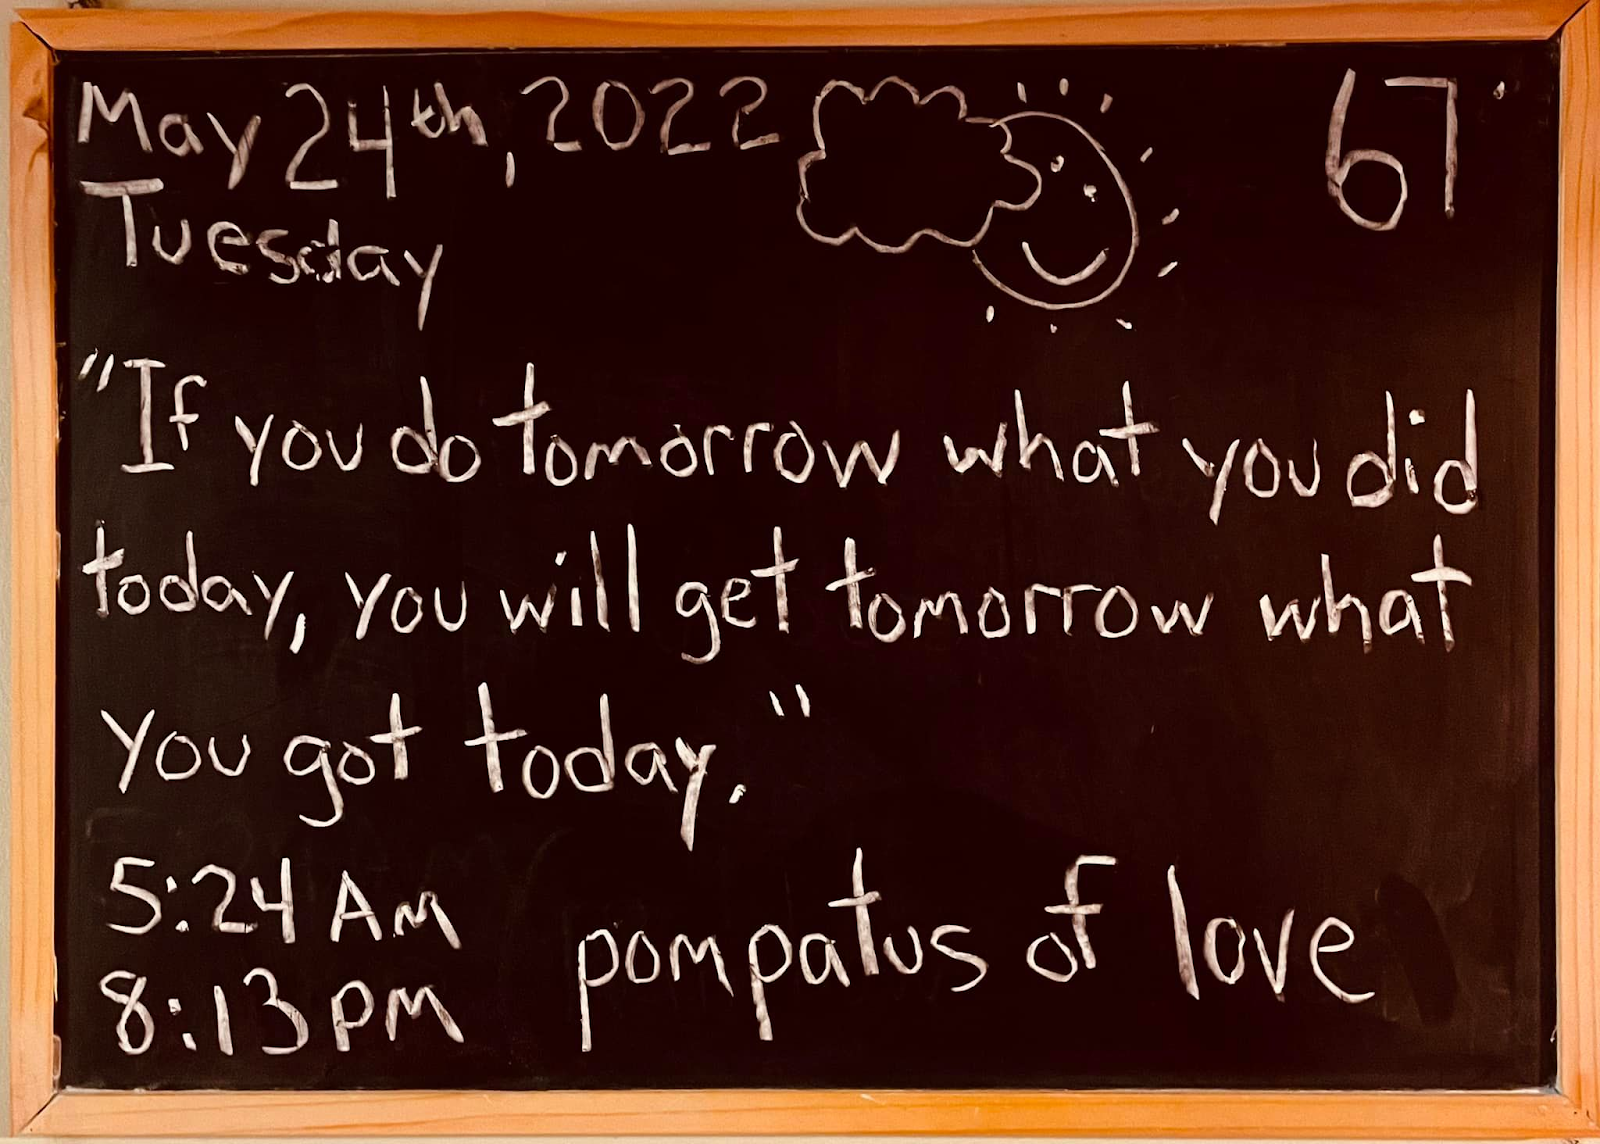 May 24th, 2022
67°
Tuesday
"If you do tomorrow what you did
today, you will get tomorrow what
you got today."
5:24 AM
8:13 PM
pompatus of love